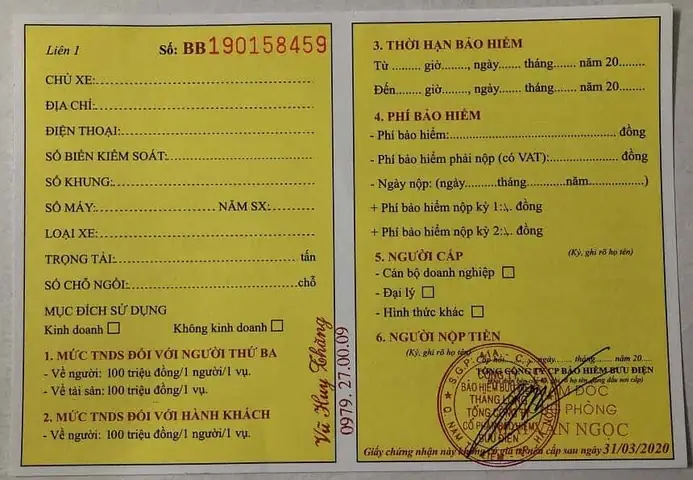 Liên 1
Số: BB190158459
CHỦ XE:
ĐỊA CHỈ:
ĐIỆN THOẠI:
SỐ BIỂN KIỂM SOÁT:
SỐ KHUNG:
SỐ MÁY: NĂM SX:
LOẠI XE:
TRỌNG TẢI: tấn
SỐ CHỖ NGỒI: chỗ
MỤC ĐÍCH SỬ DỤNG
Kinh doanh ☐ Không kinh doanh ☐
1. MỨC TNDS ĐỐI VỚI NGƯỜI THỨ BA
- Về người: 100 triệu đồng/1 người/1 vụ.
- Về tài sản: 100 triệu đồng/1 vụ.
2. MỨC TNDS ĐỐI VỚI HÀNH KHÁCH
- Về người: 100 triệu đồng/1 người/1 vụ.
Vũ Huy Thăng
0979. 27.00.09
3. THỜI HẠN BẢO HIỂM
Từ ......... giờ........, ngày....... tháng....... năm 20........
Đến........ giờ........, ngày....... tháng....... năm 20........
4. PHÍ BẢO HIỂM
- Phí bảo hiểm: đồng
- Phí bảo hiểm phải nộp (có VAT): đồng
- Ngày nộp: (ngày..........tháng............năm..............)
+ Phí bảo hiểm nộp kỳ 1: đồng
+ Phí bảo hiểm nộp kỳ 2: đồng
5. NGƯỜI CẤP (Ký, ghi rõ họ tên)
- Cán bộ doanh nghiệp ☐
- Đại lý ☐
- Hình thức khác ☐
6. NGƯỜI NỘP TIỀN
(Ký, ghi rõ họ tên)
ngày....... tháng ....... năm 20....
TỔNG CÔNG TY CP BẢO HIỂM BƯU ĐIỆN
CÔNG TY
BẢO HIỂM BƯU ĐIỆN
THĂNG LONG
TỔNG CÔNG TY
CỔ PHẦN BẢO HIỂM
BƯU ĐIỆN
PHÒNG
VĂN NGỌC
Giấy chứng nhận này không có giá trị nếu cấp sau ngày 31/03/2020